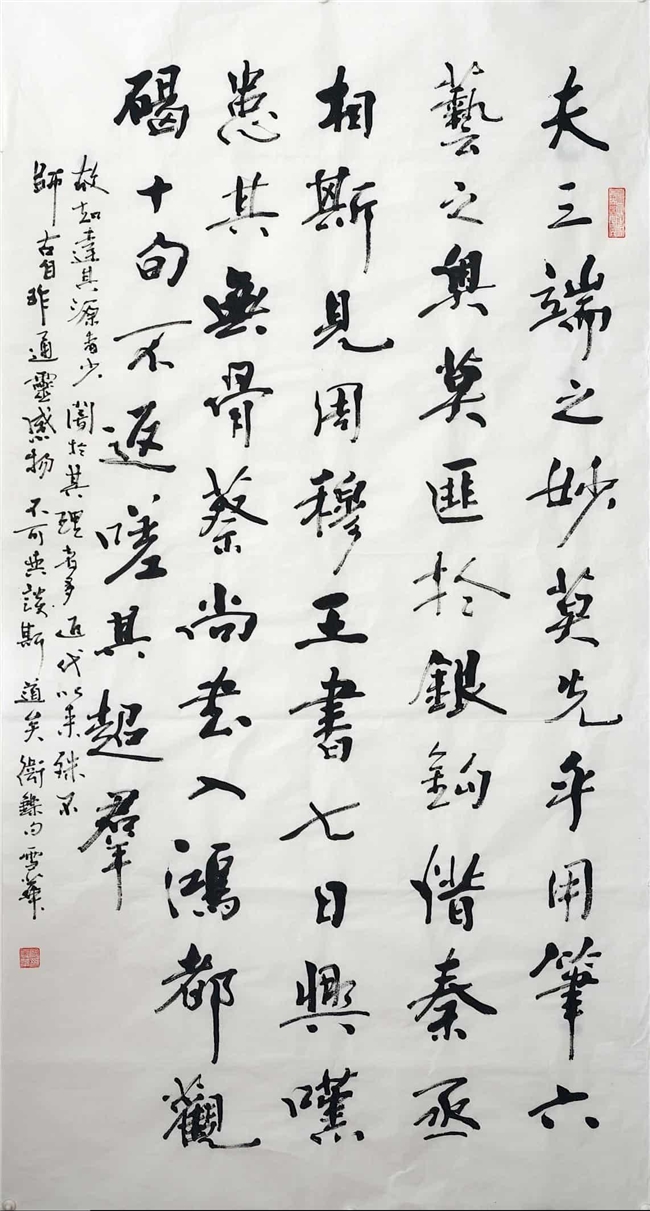 夫三端之妙莫先乎用筆六
藝之奥莫匪於銀鈎偕秦丞
相斯見周穆王書七日興嘆
患其無骨蔡尚書入鴻都觀
碣十旬不返嗟其超羣
故知達其源者少闇於其理者多近代以來殊不
師古自非通靈感物不可與談斯道矣衛鑠句雪華